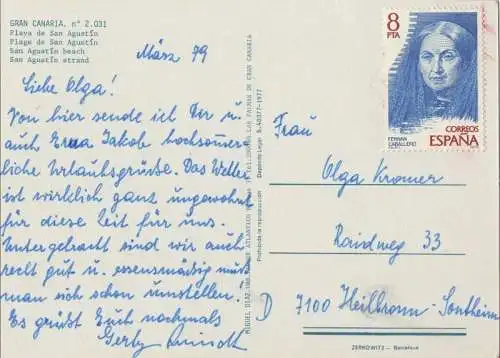 GRAN CANARIA. nº 2.031
Playa de San Agustín
Plage de San Agustín
San Agustín beach
San Agustín strand
März 79
Liebe Olga!
Von hier sende ich Dir u.
auch Erna Jakob hochsommer
liche Urlaubsgrüsse. Das Wetter
ist wirklich ganz ungewohnt
für diese Zeit für uns.
Untergebracht sind wir auch
recht gut u. essensmäßig muß
man sich schon umstellen!
Es grüßt Euch nochmals
Gerty
DISTRIBUIDOR LAS PALMAS DE GRAN CANARIA
Depósito Legal B. 40377-1977
Prohibida la reproducción
8
PTA
FERNAN
CABALLERO
CORREOS
ESPAÑA
Frau
Olga Kromer
Raidweg 33
D 7100 Heilbronn-Sontheim
ZERKOWITZ - Barcelona